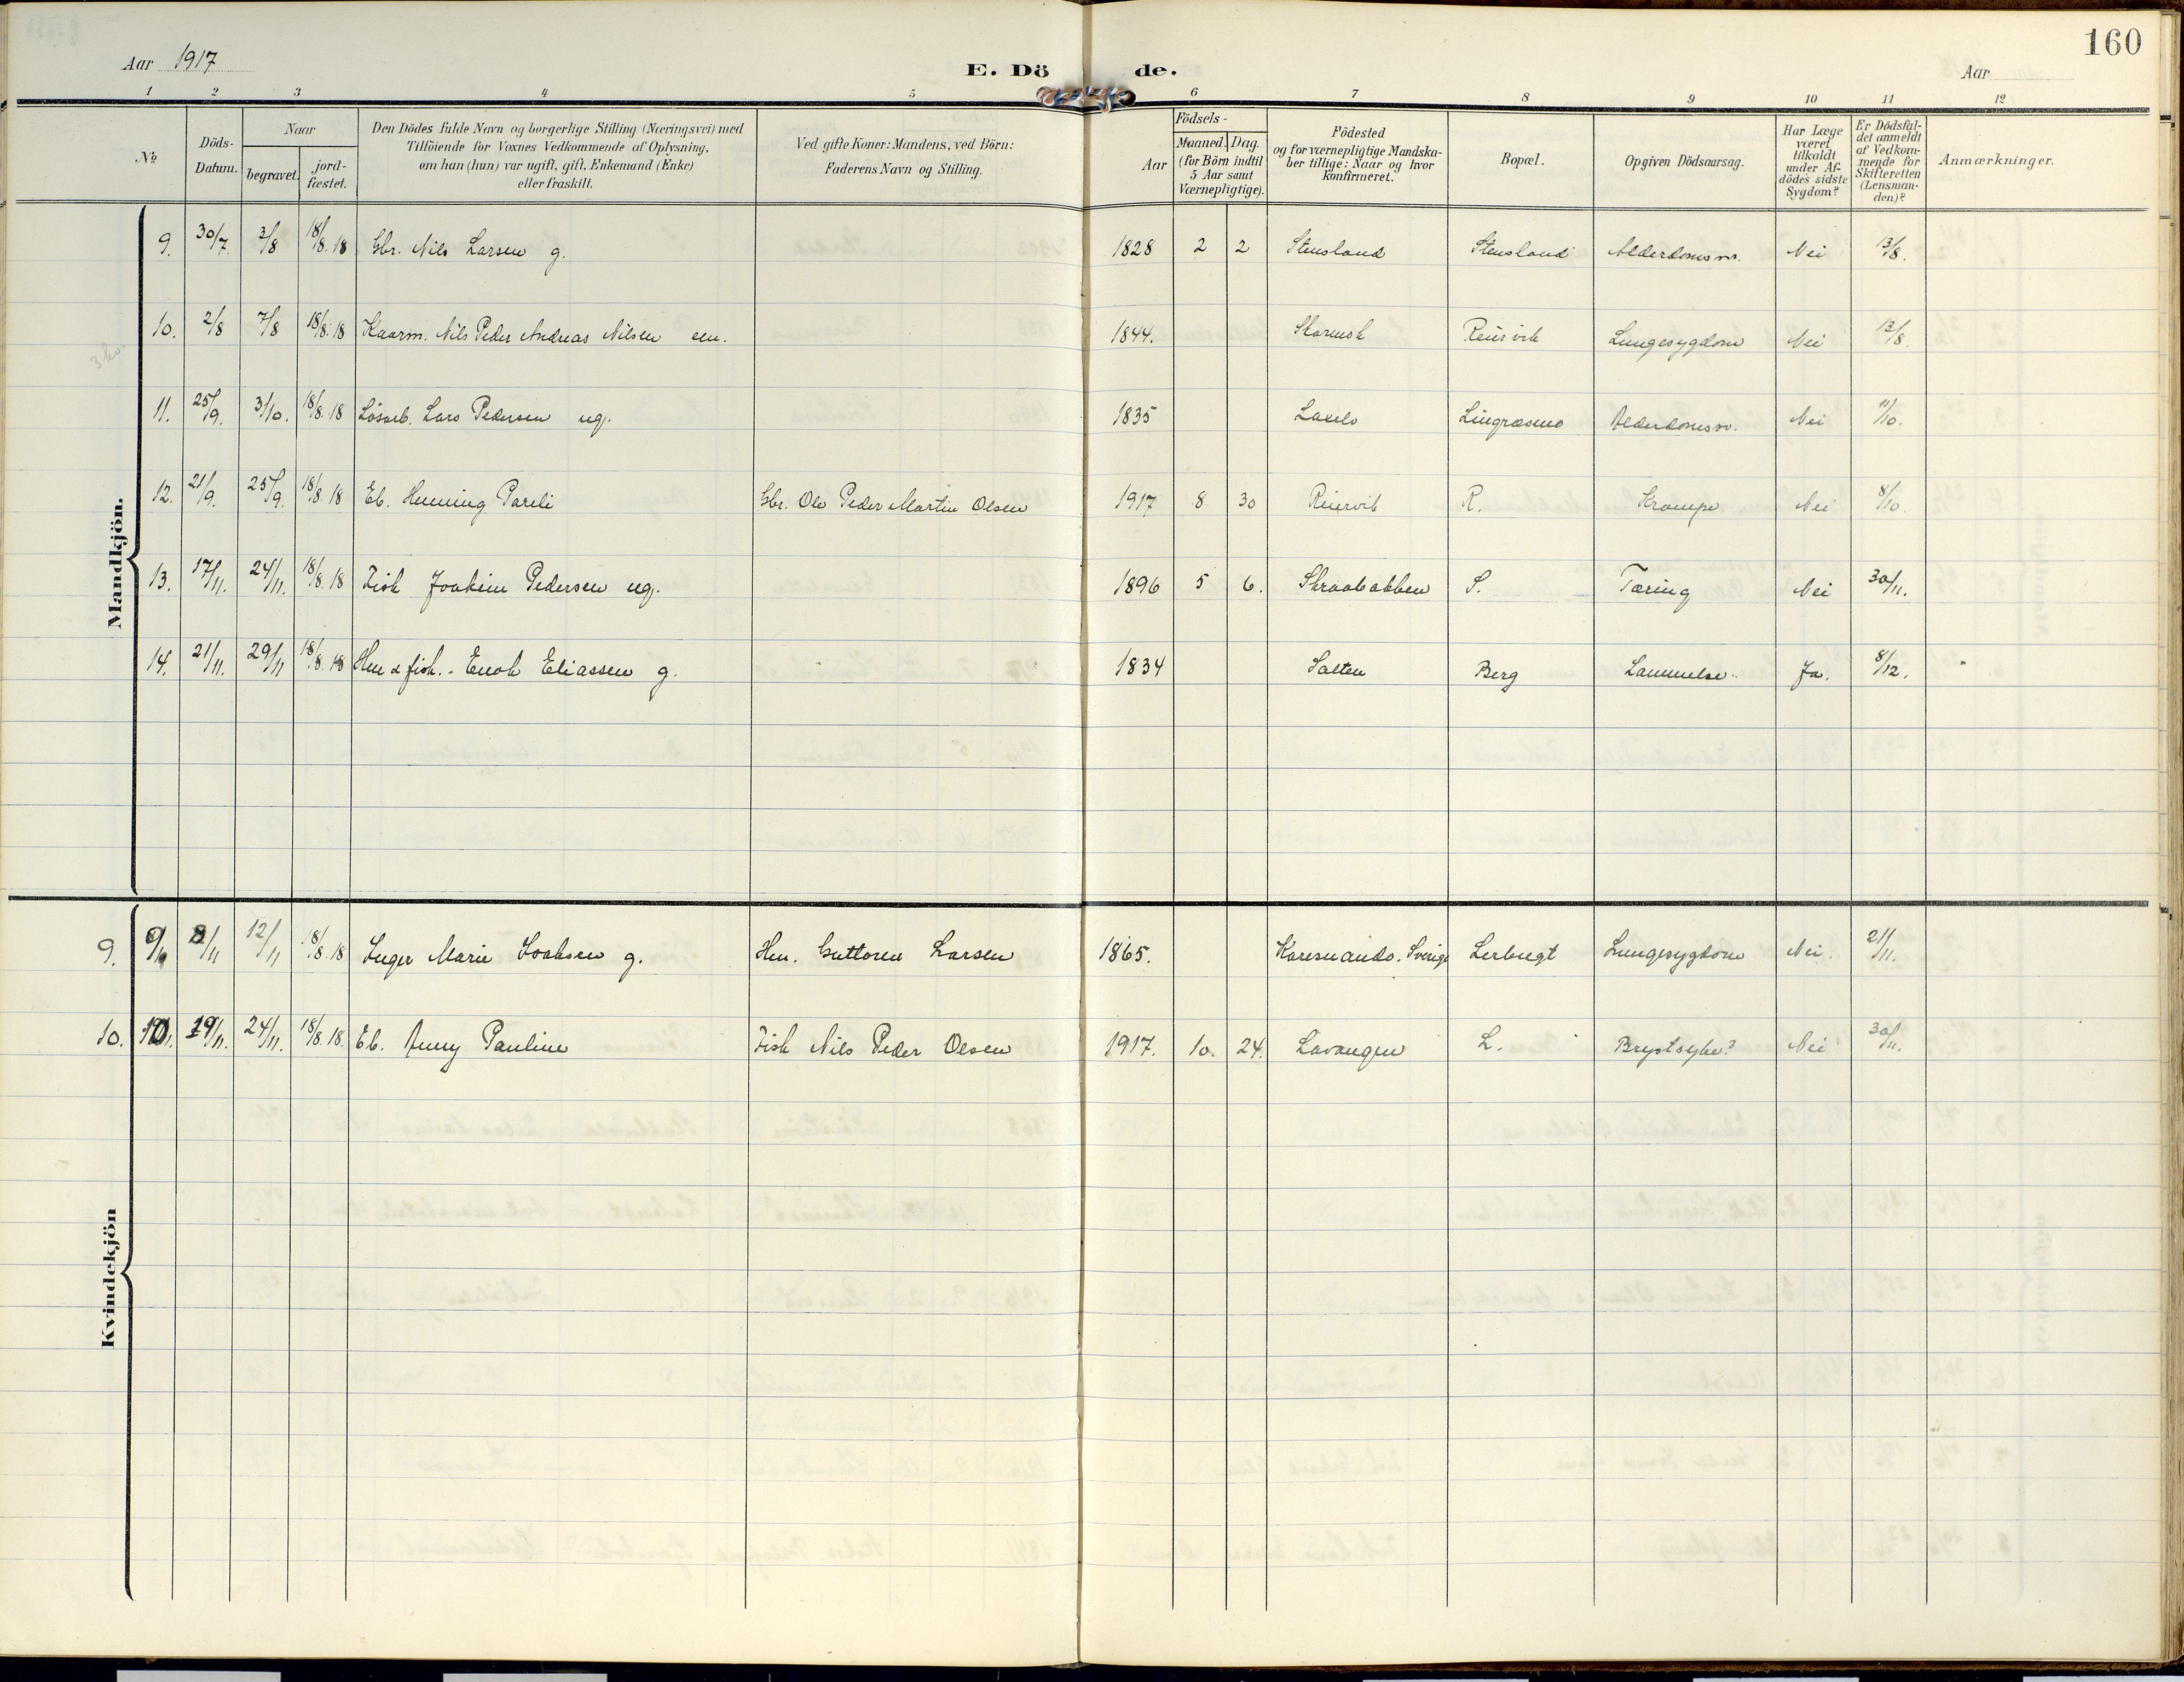 160
Aar 1917
E. Dö de.
Aar
1 2 3 4 5 6 7 8 9 10 11 12
No
Döds-Datum.
Naar
begravet.
jord-fæstet.
Den Dödes fulde Navn og borgerlige Stilling (Næringsvei) med
Tilföiende for Voxnes Vedkommende af Oplysning,
om han (hun) var ugift, gift, Enkemand (Enke)
eller fraskilt.
Ved gifte Koner: Mandens, ved Börn:
Faderens Navn og Stilling.
Födsels-
Aar
Maaned. Dag.
(for Börn indtil
5 Aar samt
Værnepligtige).
Födested
og for værnepligtige Mandska-
ber tillige: Naar og hvor
konfirmeret.
Bopæl.
Opgiven Dödsaarsag.
Har Læge
været
tilkaldt
under Af-
dödes sidste
Sygdom?
Er Dödsfal-
det anmeldt
af Vedkom-
mende for
Skifteretten
(Lensman-
den)?
Anmærkninger.
Mandkjön.
9. 30/7. 3/8 18/8.18 Gbr. Nils Larsen g. 1828 2 2 Stensland Stensland Alderdomssv. Nei 13/8.
10. 2/8 7/8 18/8.18 Kaarm. Nils Peder Andreas Nilsen em. 1844. Reirsvik Lungesygdom Nei 13/8.
11. 25/9. 3/10. 18/8.18 Lösarb. Lars Pedersen ug. 1835 Laxelv Lingræsmo Alderdomssv. Nei 11/10.
12. 21/9. 25/9. 18/8.18 Eb. Henning Pareli Gbr. Ole Peder Martin Olsen 1917 8 30 Reiersvik R. Krampe Nei 8/10.
13. 17/11. 24/11. 18/8.18 Fisk Joakim Pedersen ug. 1896 5 6. Skraabakken S. Tæring Nei 30/11.
14. 21/11. 29/11 18/8.18 Hm & fisk. - Enok Eliassen g. 1834 Salten Berg Lammelse Ja. 8/12.
Kvindekjön
9. 8/11 12/11 18/8.18 Inger Marie Isaksen g. Hm. Guttorm Larsen 1865. Karesuando. Sverige Lerbugt Lungesygdom Nei. 21/11.
10. 19/11. 24/11. 18/8.18. Eb. Anny Pauline Fisk Nils Peder Olsen 1917. 10. 24. Lavangen L. Brystsyke? Nei 30/11.